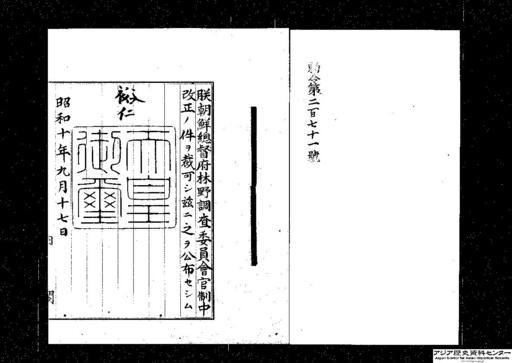 勅令第二百七十一號
朕朝鮮總督府林野調査委員會官制中
改正ノ件ヲ裁可シ茲ニ之ヲ公布セシム
裕仁
天皇
御璽
昭和十年九月十七日
内閣
アジア歴史資料センター
Japan Center for Asian Historical Records